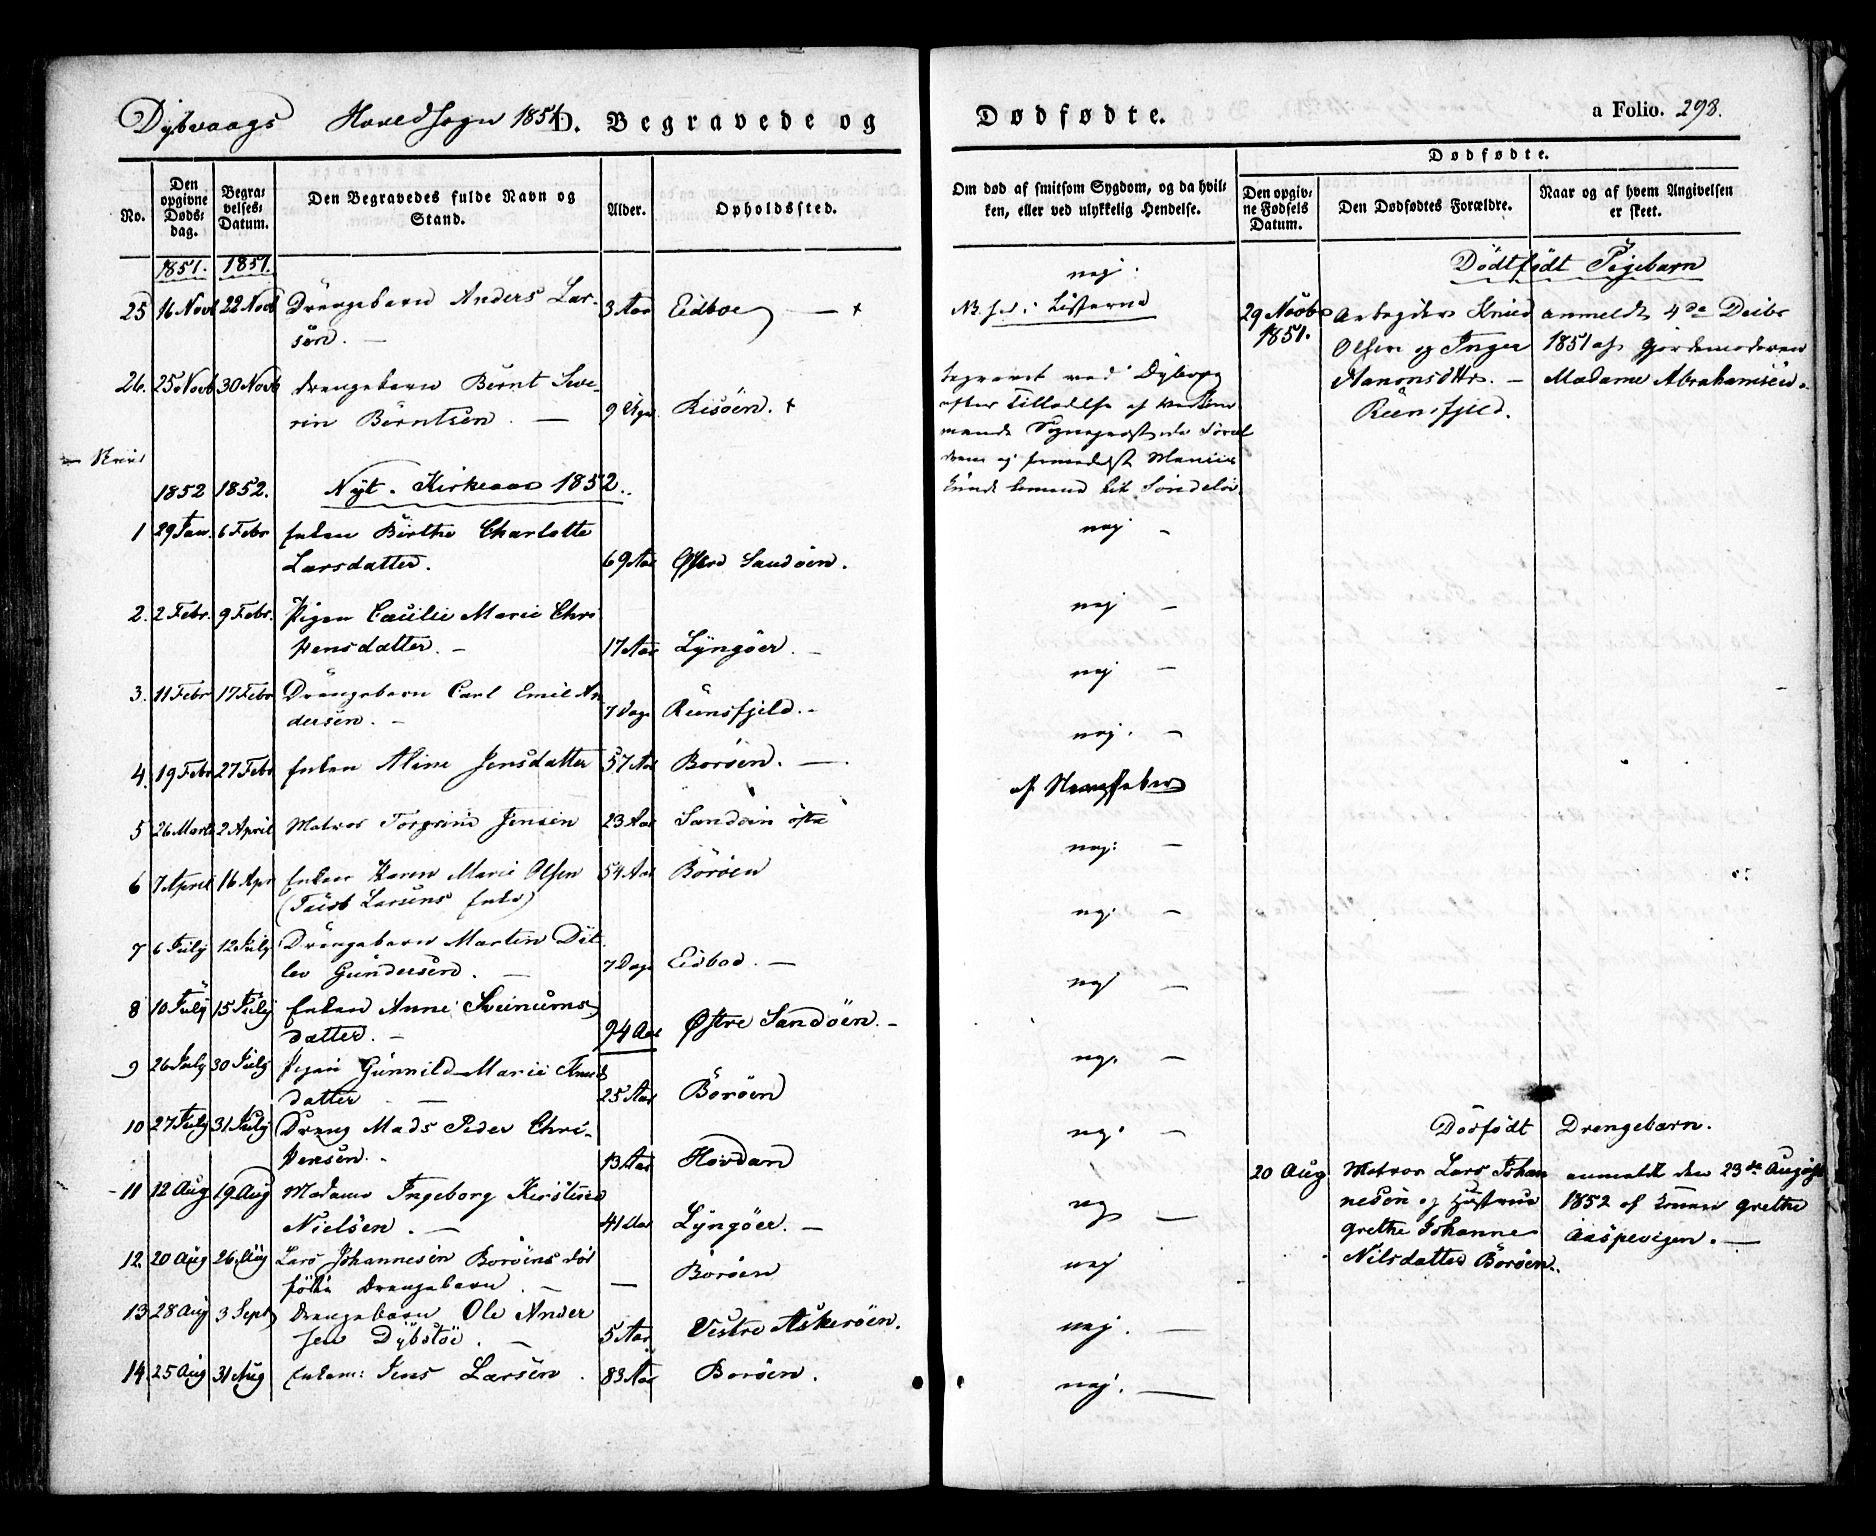 Dybvaags Hovedsogn 1851. D. Begravede og
No.
Den opgivne Døds- dag.
Begra- velses- Datum.
Den Begravedes fulde Navn og Stand.
Alder.
Opholdssted.
1851. 1851.
25 16 Novb 22 Novb Drengebarn Anders Lar-
sen. — 3 Aar Eidboe — +
26. 25 Novb 30 Novb drengebarn Bernt Seve-
rin Berntsen — 9 Uger Risøen. +
1852 1852. Nyt Kirkeaar 1852.
1 29 Jan. 6 Febr Enken Birthe Charlotte
Larsdatter. 69 Aar Østre Sandøen.
2. 2 Febr. 9 Febr. Pigen Cæcilie Marie Chri
stensdatter. — 17 Aar Lyngøer. —
3. 11 Febr 17 Febr Drengebarn Carl Emil An
dersen. — 7 Dage Reensfjeld. —
4. 19 Febr 27 Febr Enken Aline Jensdatter 57 Aar Borøen. —
5 26 Marts 2 April Matros Torgrim Jensen 23 Aar Sandøen østre
6 7 April 16 Apr Enken Karen Marie Olsen 54 Aar Borøen
7 6 July 12 July Drengebarn Marten Dit
lev Gundersen. — 7 Dage Eidboe. —
8 10 July 15 July Enken Anne Sveinums
datter. — 94 Aar Østre Sandøen. —
9 26 July 30 July Pigen Gunnild Marie Knuds
datter — 25 Aar Borøen
10 27 July 31 July Dreng Mads Peder Chri-
stensen. — 13 Aar Hovdan
11 12 Aug 19 Aug Madame Ingeborg Kirstine
Nielsen. — 41 Aar Lyngøer. —
12. 20 Aug 26. Aug Lars Johannesen Borøens død
fødte Drengebarn. — — Borøen
13 28 Aug 3 Sept Drengebarn Ole Ander
sen Dybstøe. — 5 Aar Vestre Askerøen.
14. 25 Aug 31 Aug Enkem: Jens Larsen. 83 Aar Borøen.
Dødfødte. a Folio. 298.
Om død af smitsom Sygdom, og da hvil-
ken, eller ved ulykkelig Hendelse.
Dødfødte.
Den opgiv-
ne Fødsels
Datum.
Den Dødfødtes Forældre.
Naar og af hvem Angivelsen
er skeet.
nej.
Dödtfødt Pigebarn
29 Novb 1851. Arbejder Knud
Olsen og Inger
Aanonsdttr. —
Reensfjeld.
anmeldt 4de Decbr
1851 af Gjordemoderen
Madame Abrahamsen.
begravet ved Dybvaag
efter Tilladelse af
nej —
nej —
nej —
nej. —
nej: —
nej. —
nej —
nej. —
nej. —
nej —
nej
nej. —
nej. —
Dødfødt Drengebarn.
20 Aug Matros Lars Johan
nesen og Hustrue
Grethe Johanne
Nilsdatter Borøen.
anmeldt den 23de August
1852 af konen Grethe
Aaspevigen. —